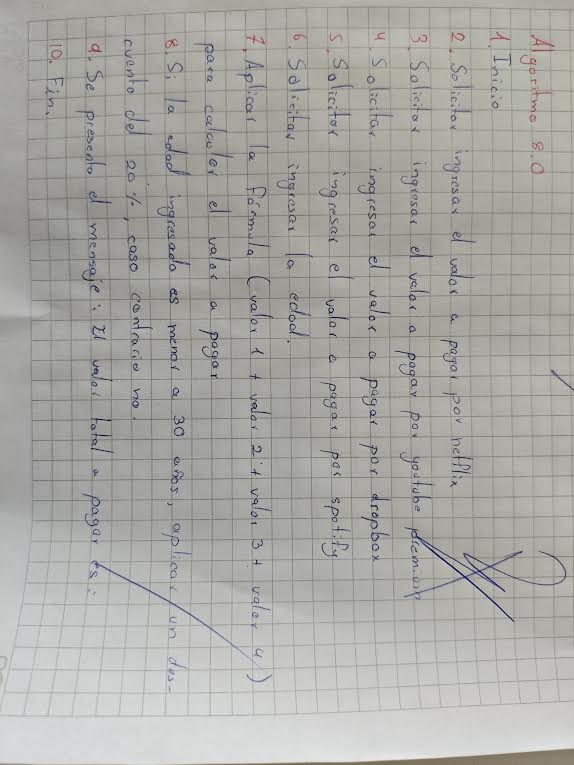 Algoritmo 8.0
1. Inicio
2. Solicitar ingresar el valor a pagar por netflix
3. Solicitar ingresar el valor a pagar por youtube premium
4. Solicitar ingresar el valor a pagar por dropbox
5. Solicitar ingresar el valor a pagar por spotify
6. Solicitar ingresar la edad.
7. Aplicar la Fórmula (valor 1 + valor 2 + valor 3 + valor 4)
para calcular el valor a pagar
8. Si la edad ingresada es menor a 30 años, aplicar un des-
cuento del 20%, caso contrario no.
9. Se presenta el mensaje: El valor total a pagar es:
10. Fin.